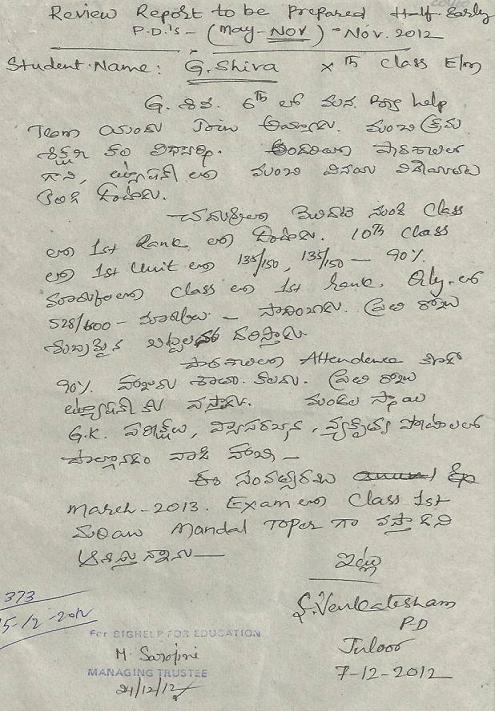 Review Report to be Prepared Half Early
P.D.'s - (May-Nov) - Nov. 2012
Student Name: G. Shiva Xth Class E/m
G. శివ. 6th లో మన help
Team యందు Join అయ్యాడు. మంచి క్రమ
శిక్షణ గల విద్యార్థి.
గాని, ట్యూషన్ లో మంచి వినయ
కలిగి ఉంటాడు.
చదువులో మొదటి నుంచి Class
లో 1st Rank లో ఉంటాడు. 10th Class
లో 1st Unit లో 135/150, 135/150 - 90%
మార్కులతో Class లో 1st Rank. Qly. లో
528/600 - మార్కులు - సాధించాడు. ప్రతి రోజు
శుభ్రమైన బట్టలు ధరిస్తాడు.
పాఠశాలలో Attendence కూడా
90% హాజరు శాతం కలదు. ప్రతి రోజు
ట్యూషన్ కు వస్తాడు. మండల స్థాయి
G.K. పరీక్షలు, వ్యాసరచన, వక్తృత్వ పోటీలలో
పాల్గొనడం
ఈ సంవత్సరము
March-2013. Exam లో Class 1st
మరియు Mandal Toper గా వస్తాడని
ఆశిస్తున్నాను —
ఇట్లు
S. Venkatesham
P.D
Juloor
7-12-2012
373
15-12-2012
For SIGHELP FOR EDUCATION
M. Sarojini
MANAGING TRUSTEE
24/12/12